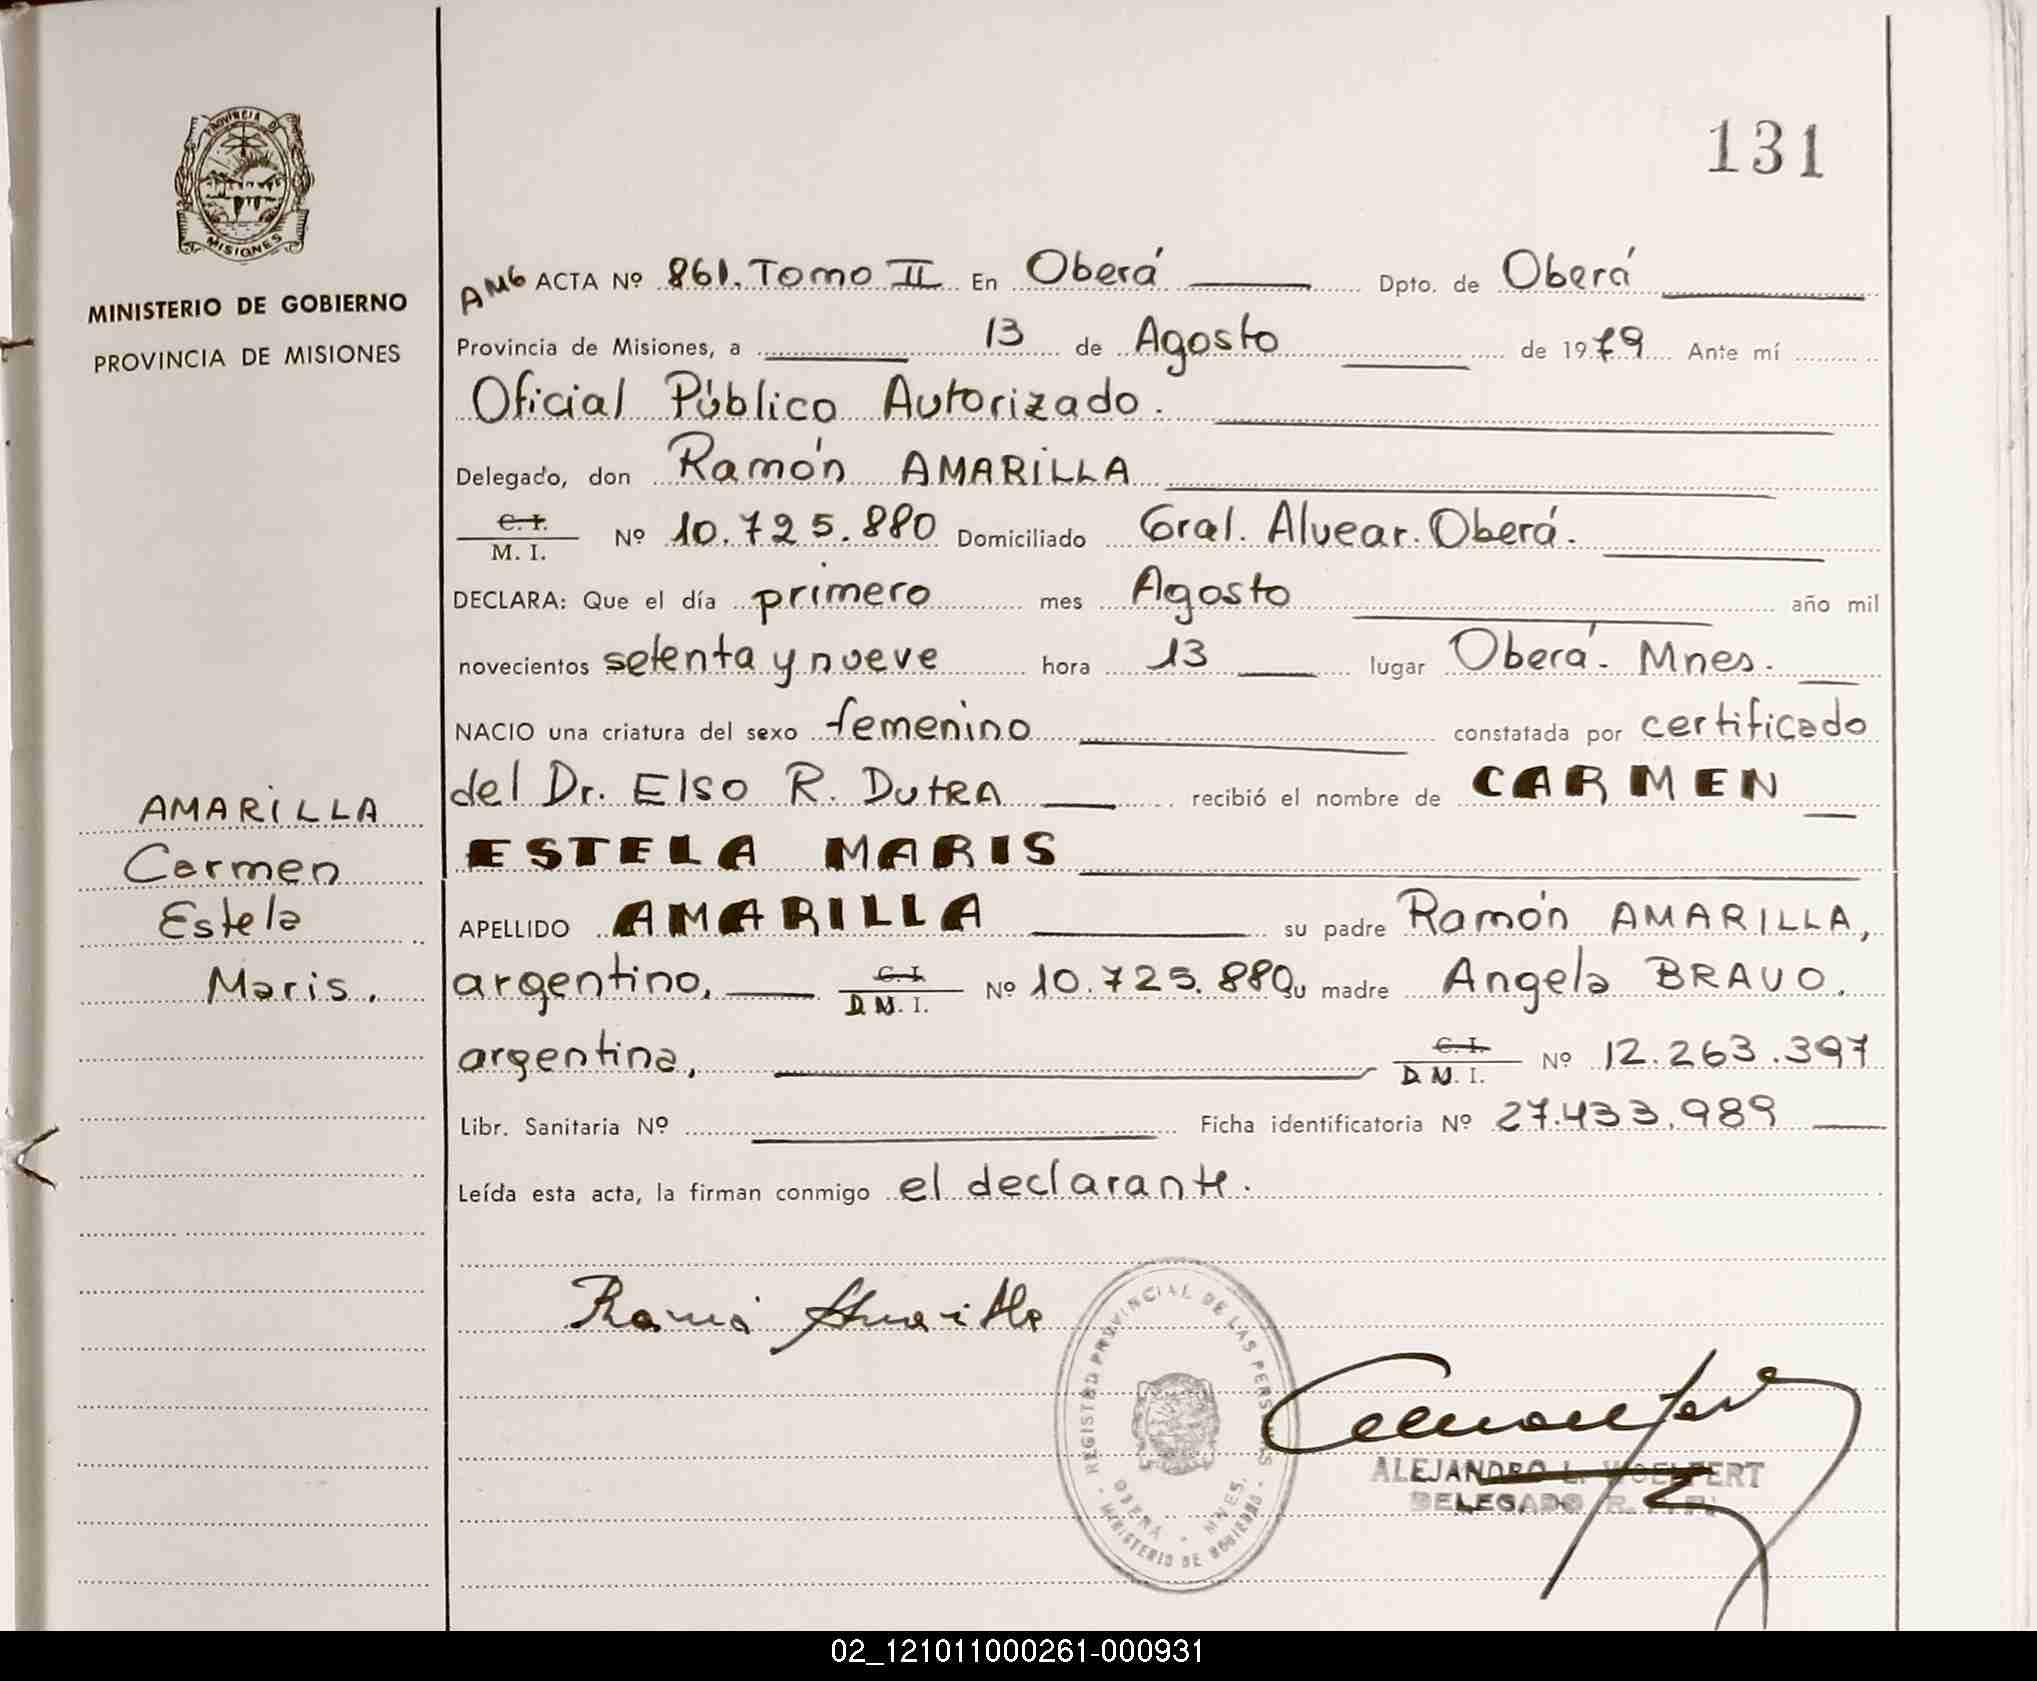 131
PROVINCIA DE
MISIONES
MINISTERIO DE GOBIERNO
PROVINCIA DE MISIONES
AMG ACTA Nº 861. Tomo II En Oberá Dpto. de Oberá
Provincia de Misiones, a 13 de Agosto de 1979 Ante mí
Oficial Público Autorizado.
Delegado, don Ramón AMARILLA
C. I.
M. I. Nº 10.725.880 Domiciliado Gral. Alvear. Oberá.
DECLARA: Que el día primero mes Agosto año mil
novecientos setenta y nueve hora 13 lugar Oberá. Mnes.
NACIO una criatura del sexo femenino constatada por certificado
del Dr. Elso R. Dutra recibió el nombre de CARMEN
ESTELA MARIS
APELLIDO AMARILLA su padre Ramón AMARILLA,
argentino, C. I.
D.N. I. Nº 10.725.880 su madre Angela BRAVO.
argentina, C. I.
D.N. I. Nº 12.263.397
Libr. Sanitaria Nº Ficha identificatoria Nº 27.433.989
Leída esta acta, la firman conmigo el declarante.
AMARILLA
Carmen
Estela
Maris.
Ramón Amarilla
REGISTRO PROVINCIAL DE LAS PERSONAS
OBERÁ - MNES.
MINISTERIO DE GOBIERNO
ALEJANDRO L. WOELFERT
DELEGADO
02_121011000261-000931